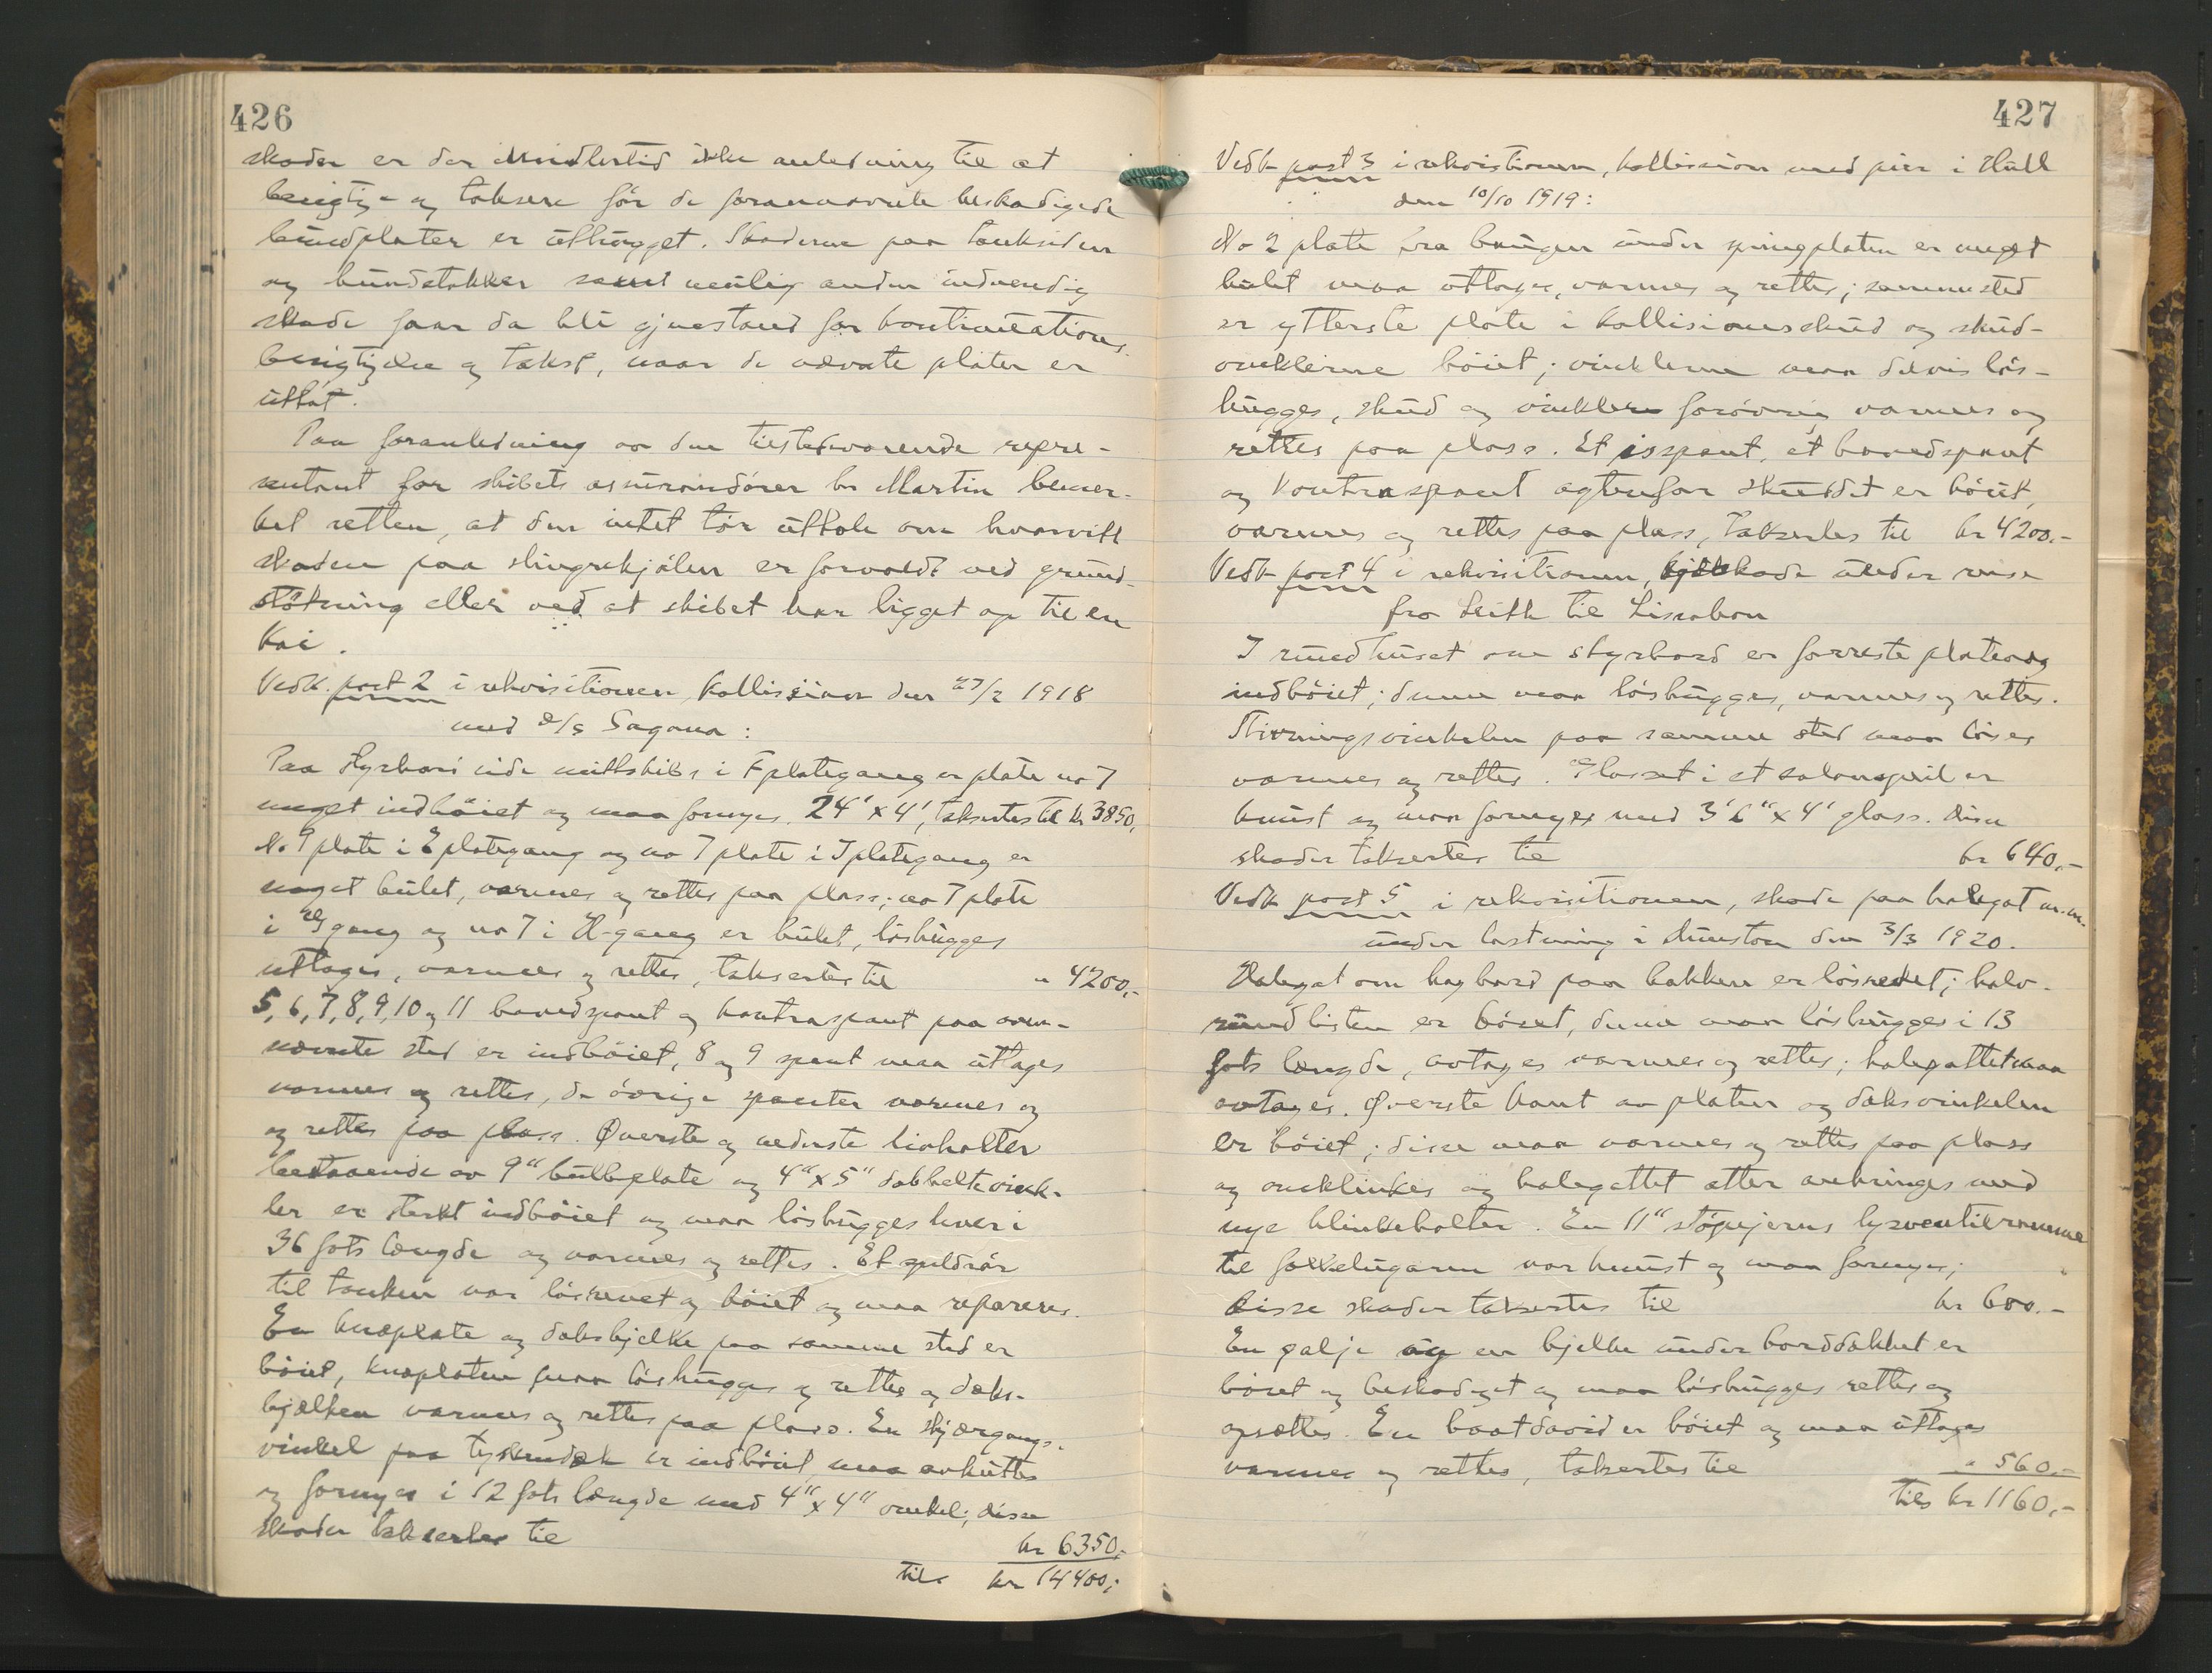 426
skader er der imidlertid ikke anledning til at
besigtige og taksere før de forannævnte beskadigede
bundplater er uthugget. Skaderne paa tanksiden
og bundstokker samt mulig anden indvendig
skade faar da bli gjenstand for kontinuations-
besigtigelse og takst, naar de nævnte plater er
uttat.
Paa foranledning av den tilstedeværende repre-
sentant for skibets assurandører hr Martin bemer-
ket retten, at den intet tør uttale om hvorvidt
skaden paa slingrekjølen er forvoldt ved grund-
støtning eller ved at skibet har ligget op til en
kai.
Vedk. post 2 i rekvisitionen, kollision den 27/2 1918
med D/S Sagona:
Paa styrbord side midtskibs i F plategang er plate no 7
meget indbøiet og maa fornyes. 24' x 4', taksertes til kr 3850,
No 9 plate i E plategang og no 7 plate i J plategang er
noget bulet, varmes og rettes paa plass; no 7 plate
i G gang og no 7 i H-gang er bulet, løshugges
uttages, varmes og rettes, taksertes til " 4200,-
5, 6, 7, 8, 9, 10 og 11 hovedspant og kontraspant paa oven-
nævnte sted er indbøiet, 8 og 9 spant maa uttages
varmes og rettes, de øvrige spanter varmes og
og rettes paa plass. Øverste og nederste sideholter
bestaaende av 9" bulbplate og 4" x 5" dobbelte vink-
ler er sterkt indbøiet og maa løshugges hver i
36 fots længde og varmes og rettes. Et peilerør
til tanken var løsrevet og bøiet og maa repareres.
En knæplate og dæksbjelke paa samme sted er
bøiet, knæplaten maa løshugges og rettes og dæks-
bjælken varmes og rettes paa plass. En skjærgangs-
vinkel paa tyskendæk er indbøiet maa avkuttes
og fornyes i 12 fots længde med 4" x 4" vinkel; disse
skader taksertes til
kr 6350,-
tils kr 14400,-
427
Vedk post 3 i rekvisitionen, kollision med pier i Hull
den 10/10 1919:
No 2 plate fra baugen under springplaten er meget
bulet maa uttages, varmes og rettes; sammested
er ytterste plate i kollisionsskud og skud-
vinklerne bøiet; vinklerne maa delvis løs-
hugges, skud og vinkler forøvrig varmes og
rettes paa plass. Et isspant, et hovedspant
og kontraspant agtenfor skuddet er bøiet,
varmes og rettes paa plass, taksertes til kr 4200.-
Vedk post 4 i rekvisitionen, sjøskade under reise
fra Leith til Lissabon
I rundhuset om styrbord er forreste plate og
indbøiet; denne maa løshugges, varmes og rettes.
Stivningsvinkelen paa samme sted maa løses
varmes og rettes. Glasset i et salonspeil er
knust og maa fornyes med 3'6" x 4' glass. disse
skader taksertes til kr 640.-
Vedk post 5 i rekvisitionen, skade paa halegat m.m.
under lastning i Munston den 3/3 1920.
Halegat om bagbord paa bakken er løsrevet; halv-
rundlisten er bøiet, denne maa løshugges i 13
fots længde, avtages varmes og rettes; halegattet maa
avtages. Øverste kant av platen og dæksvinkelen
er bøiet; disse maa varmes og rettes paa plass
og omklinkes og halegattet atter anbringes med
nye klinkebolter. En 11" støpejerns lysventilramme
til folkelugaren var knust og maa fornyes;
Disse skader taksertes til kr 600.-
En galje og en bjelke under baaddækket er
bøiet og beskadiget og maa løshugges rettes og
opsættes. En baatdavid er bøiet og maa uttages
varmes og rettes, taksertes til " 560.-
tils kr 1160,-